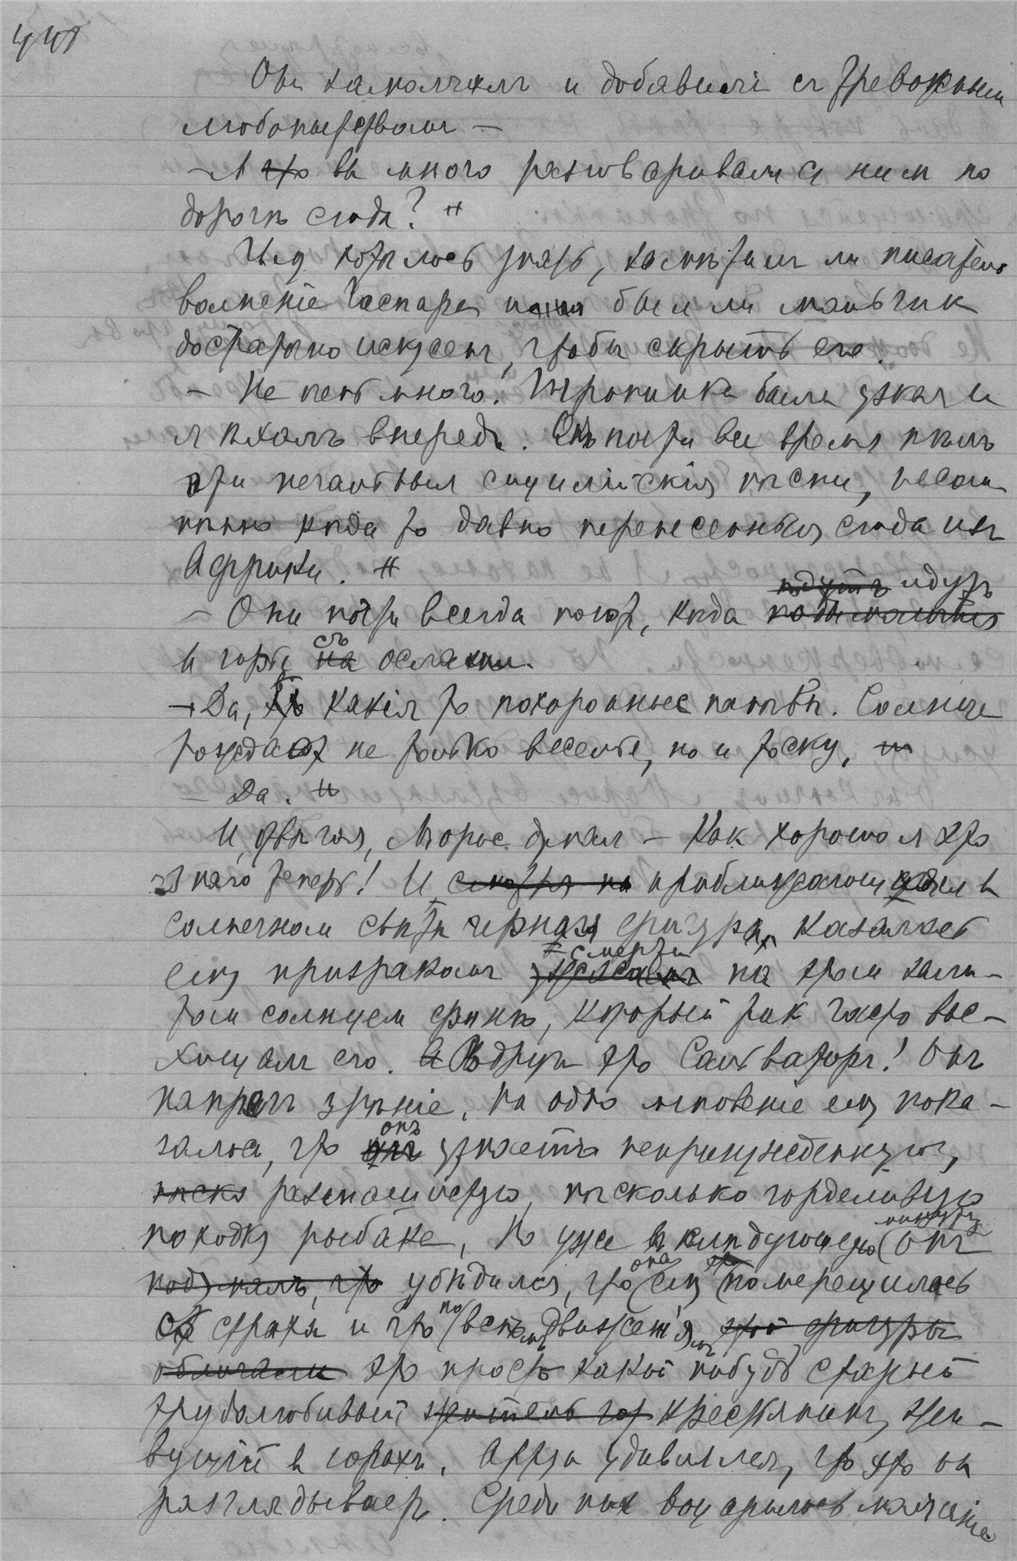 448
Онъ замолчалъ и добавилъ съ тревожнымъ
любопытствомъ —
— А вы много разговаривали съ нимъ по
дорогѣ сюда?
хотѣлось узнать, замѣтилъ ли писатель
волненіе Гаспара былъ ли мальчик
достаточно искусенъ, чтобы скрыть его.
— Не много. Тропинка была узкая и
я ѣхалъ впереди. Онъ почти все время пѣлъ
эти печальныя сицилійскія пѣсни, несом
нѣнно когда то давно перенесенныя сюда изъ
Африки.
— Они почти всегда поютъ, когда идутъ
въ горы съ ослами.
— Да, какія то похоронные напѣвы. Солнце
рождаетъ не только веселье, но и тоску,
— Да.
И, двигая, Морис думал — Какъ хорошо я это
знаю теперь! И приближающаяся въ
солнечном свѣтѣ черная фигура казалась
ему призракомъ смерти на этом зали-
том солнцем фонѣ, который так часто вос-
хищалъ его. Вдругъ это Сальваторъ! Онъ
напрягъ зрѣніе, на одно мгновеніе ему пока-
залось, что онъ узнаетъ непринужденную,
нѣсколько горделивую
походку рыбака, Но уже въ слѣдующую минуту онъ
убѣдился, что она ему померещилась
отъ страха и что по всѣмъ движеніямъ
это простъ какой нибудь старый
трудолюбивый крестьянинъ, жи-
вущій въ горахъ. Артуа удивился, что это онъ
разглядываетъ. Среди нихъ воцарилось молчаніе